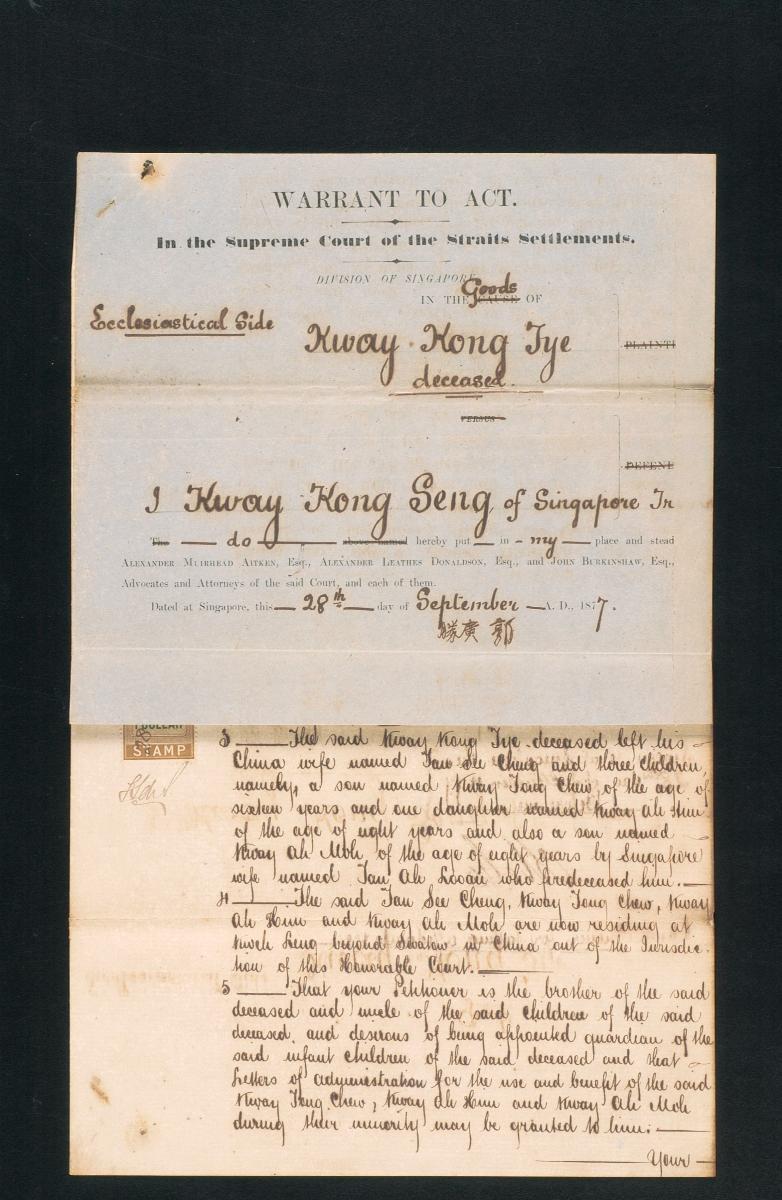 WARRANT TO ACT.
In the Supreme Court of the Straits Settlements.
DIVISION OF SINGAPORE
Goods
IN THE CAUSE OF
Ecclesiastical Side
Kway Kong Tye
PLAINTI
deceased.
VERSUS
DEFENE
I Kway Kong Seng of Singapore Tr
The do above named hereby put in my place and stead
ALEXANDER MUIRHEAD AITKEN, Esq., ALEXANDER LEATHES DONALDSON, Esq., and JOHN BURKINSHAW, Esq.,
Advocates and Attorneys of the said Court, and each of them.
Dated at Singapore, this 28th day of September A. D., 1877.
勝廣 郭
DOLLAR
STAMP
3 The said Kway Kong Tye deceased left his
China wife named Tan See Cheng and three children,
namely, a son named Kway Tong Chew, of the age of
sixteen years and one daughter named Kway Ah Him
of the age of eight years and also a son named
Kway Ah Moh, of the age of eight years by Singapore
wife named Tan Ah who predeceased him.
4 The said Tan See Cheng, Kway Tong Chew, Kway
Ah Him and Kway Ah Moh are now residing at
Kweh Leng beyond Swatow in China out of the Jurisdic-
tion of this Honorable Court.
5 That your Petitioner is the brother of the said
deceased and uncle of the said children of the said
deceased, and desirous of being appointed guardian of the
said infant children of the said deceased and that
Letters of administration for the use and benefit of the said
Kway Tong Chew, Kway Ah Him and Kway Ah Moh
during their minority may be granted to him.
Your